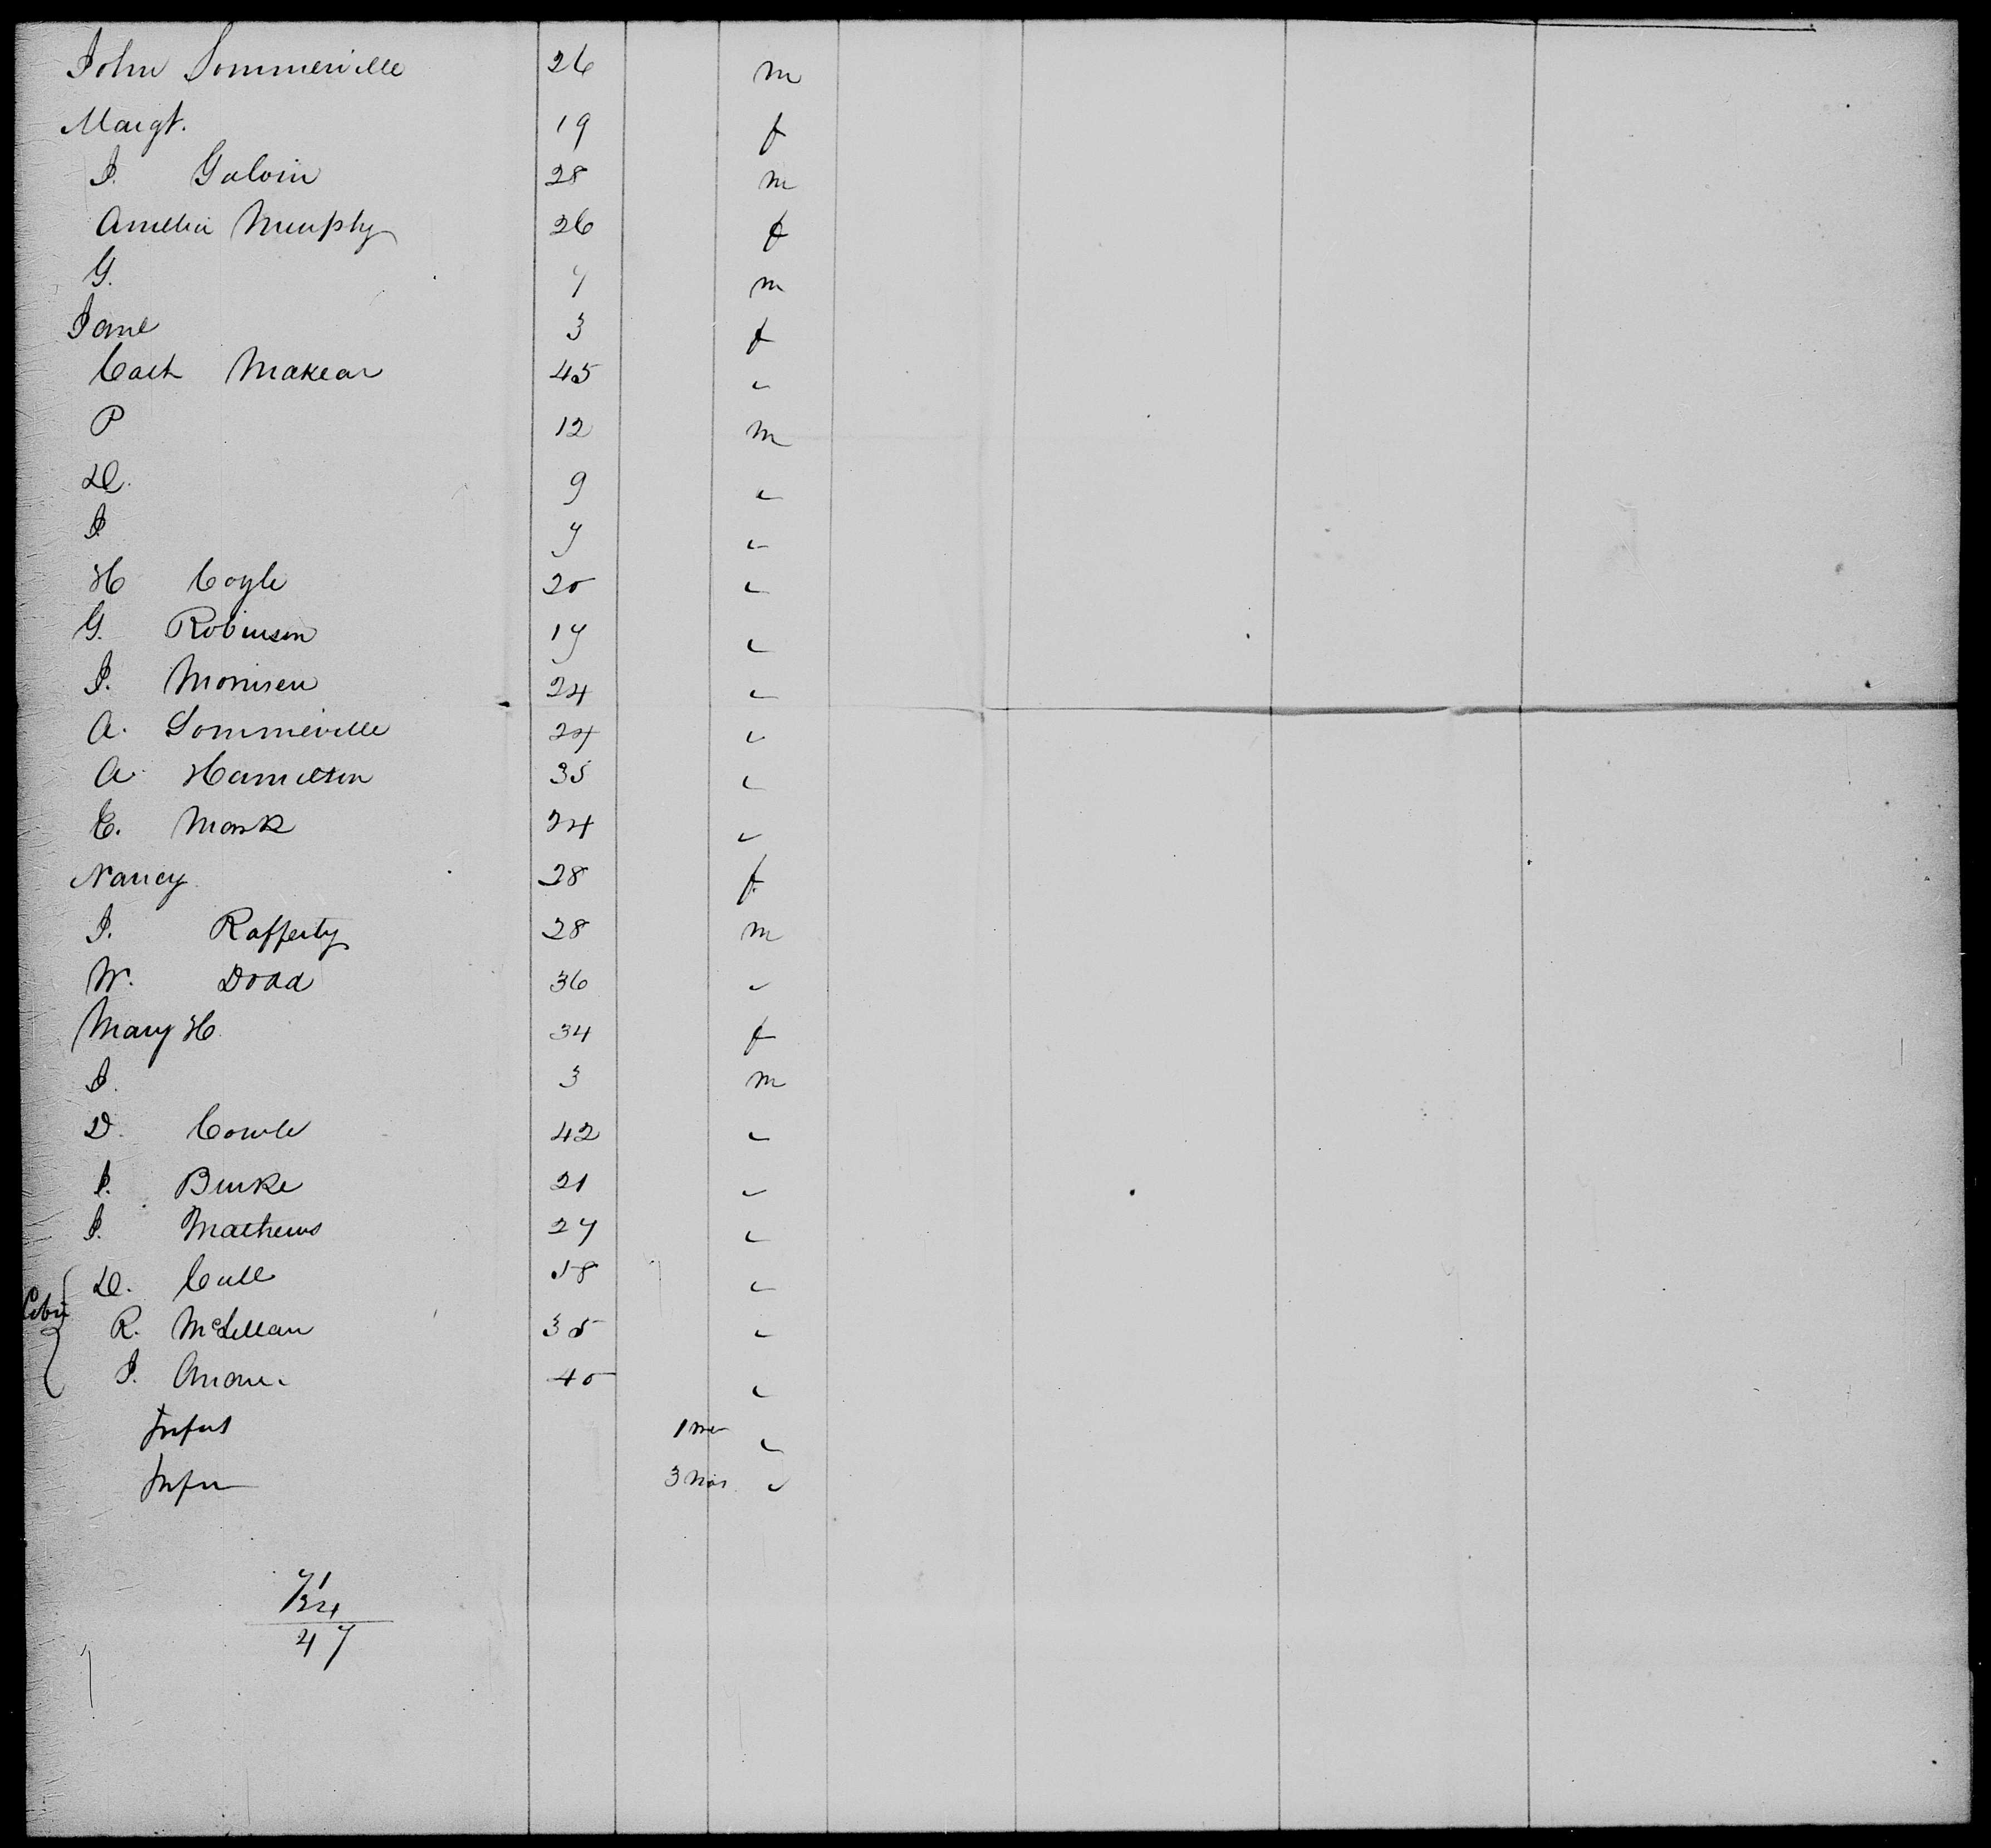 John Sommerville 26 m
Margt. 19 f
J. Galvin 28 m
Amelia Murphy 26 f
G. 7 m
Jane 3 f
Cath Makear 45 "
P 12 m
D. 9 "
J 7 "
H Coyle 20 "
G. Robinson 17 "
J. Morrisen 24 "
A. Sommerville 24 "
A. Hamilton 35 "
E. Mark 24 "
Nancy 28 f.
J. Rafferty 28 m
W. Dodd 36 "
Mary H. 34 f
J. 3 m
D. Cowle 42 "
J. Burke 21 "
J. Mathews 27 "
D. Call 58 "
Cabin
R. McLellan 35 "
J. 40 "
Infant 1 mo "
Infn 3 mos "
71
24
47